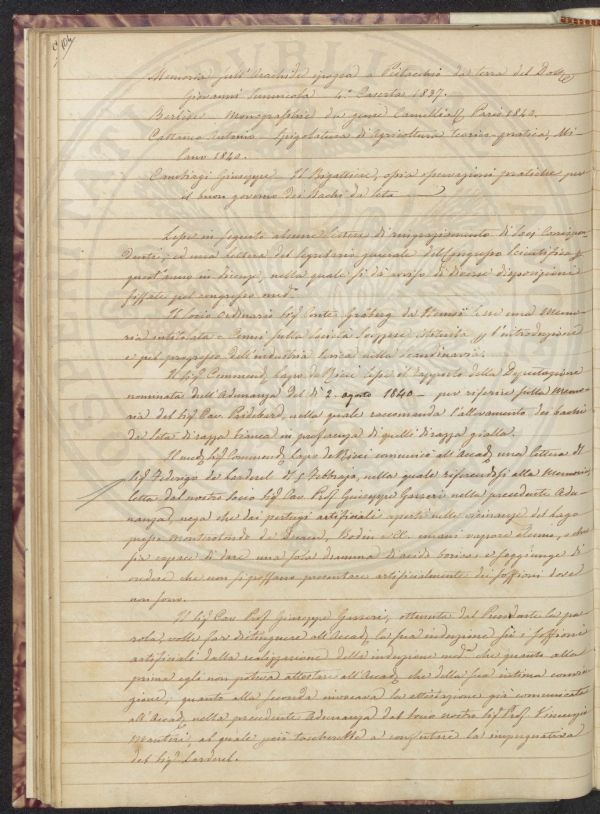 Memoria sull'Arachide ipogea o Pistacchio da terra del Dott.
Giovanni Semmola 4.° Caserta 1837.
Berlese – Monographie du genre Camellia, Paris 1840.
Cattaneo Antonio – Spigolatura di Agricoltura teorico-pratica, Mi-
lano 1840.
Giuseppe – Il Bigattiere, ossia osservazioni pratiche per
il buon governo dei Bachi da seta
Lesse in seguito alcune lettere di ringraziamento di Socj Corrispon-
denti; ed una lettera del Segretario generale del Congresso Scientifico di
quest'anno in Firenze, nella quale si dà avviso di diverse disposizioni
fissate pel congresso med.°
Il Socio Ordinario Sig. Conte Gråberg da Hemsö lesse una Memo-
ria intitolata – Cenni sulla Società Svezzese per l'introduzione
e pel progresso dell'industria serica nella Scandinavia.
Il Sig. Commend. Lapo de Ricci lesse il rapporto della Deputazione
nominata dell'Adunanza del dì 2. agosto 1840 – per riferire sulla Memo-
ria del Sig. Cav. nella quale raccomanda l'allevamento dei bachi
da seta di razza bianca in preferenza di quelli di razza gialla.
Il med. Sig. Commend. Lapo de Ricci comunicò all'Accad. una lettera del
Sig. Federigo de Larderel del 5 Febbrajo, nella quale riferendosi alla Memoria
letta dal nostro socio Sig. Cav. Prof. Giuseppe Gazzeri nella precedente Adu-
nanza, nega che dai pertugi artificiali aperti nelle vicinanze del Lago
presso Monterotondo da Durval, Bodin e C. emani vapore alcuno, e che
sia capace di dare una sola dramma di acido borico; e soggiunge di
credere che non si possano presentare artificialmente dei soffioni dove
non sono.
Il Sig. Cav. Prof. Giuseppe Gazzeri, ottenuta dal Presidente la pa-
rola, volle far distinguere all'Accad. la sua induzione su i soffioni
artificiali dalla realizzazione della induzione med.ª che quanto alla
prima egli non poteva attestare all'Accad. che della sua intima convin-
zione; quanto alla seconda invocava la attestazione già comunicata
all'Accad. nella precedente Adunanza dal socio nostro Sig. Prof. Vincenzio
Manteri, al quale più toccherebbe a confutare la impugnativa
del Sig. Larderel.